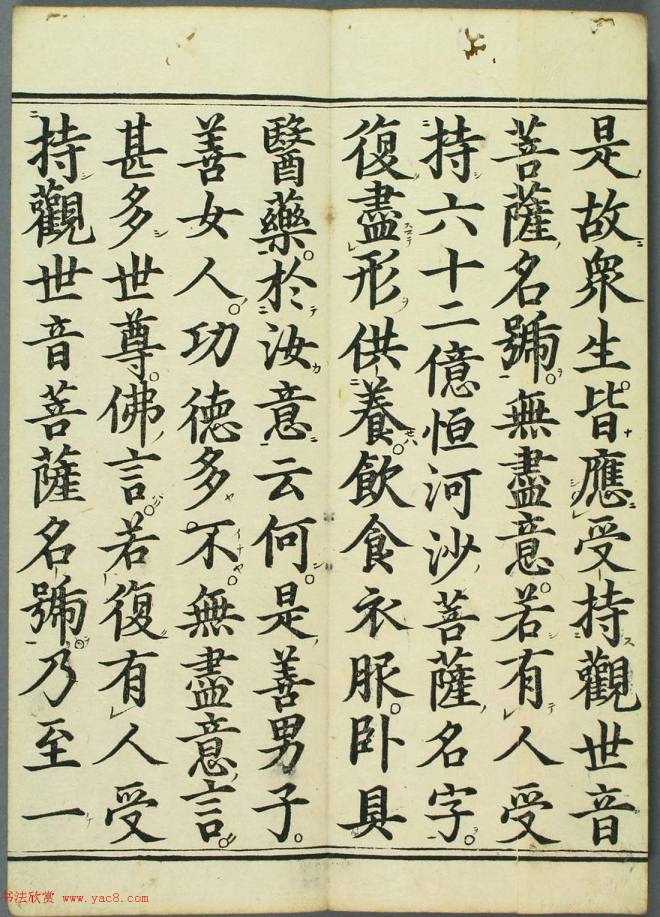 是故衆生皆應受持觀世音
菩薩名號無盡意若有人受
持六十二億恒河沙菩薩名字
復盡形供養飲食衣服卧具
醫藥於汝意云何是善男子
善女人功德多不無盡意言
甚多世尊佛言若復有人受
持觀世音菩薩名號乃至一
书法欣赏 www.yac8.com